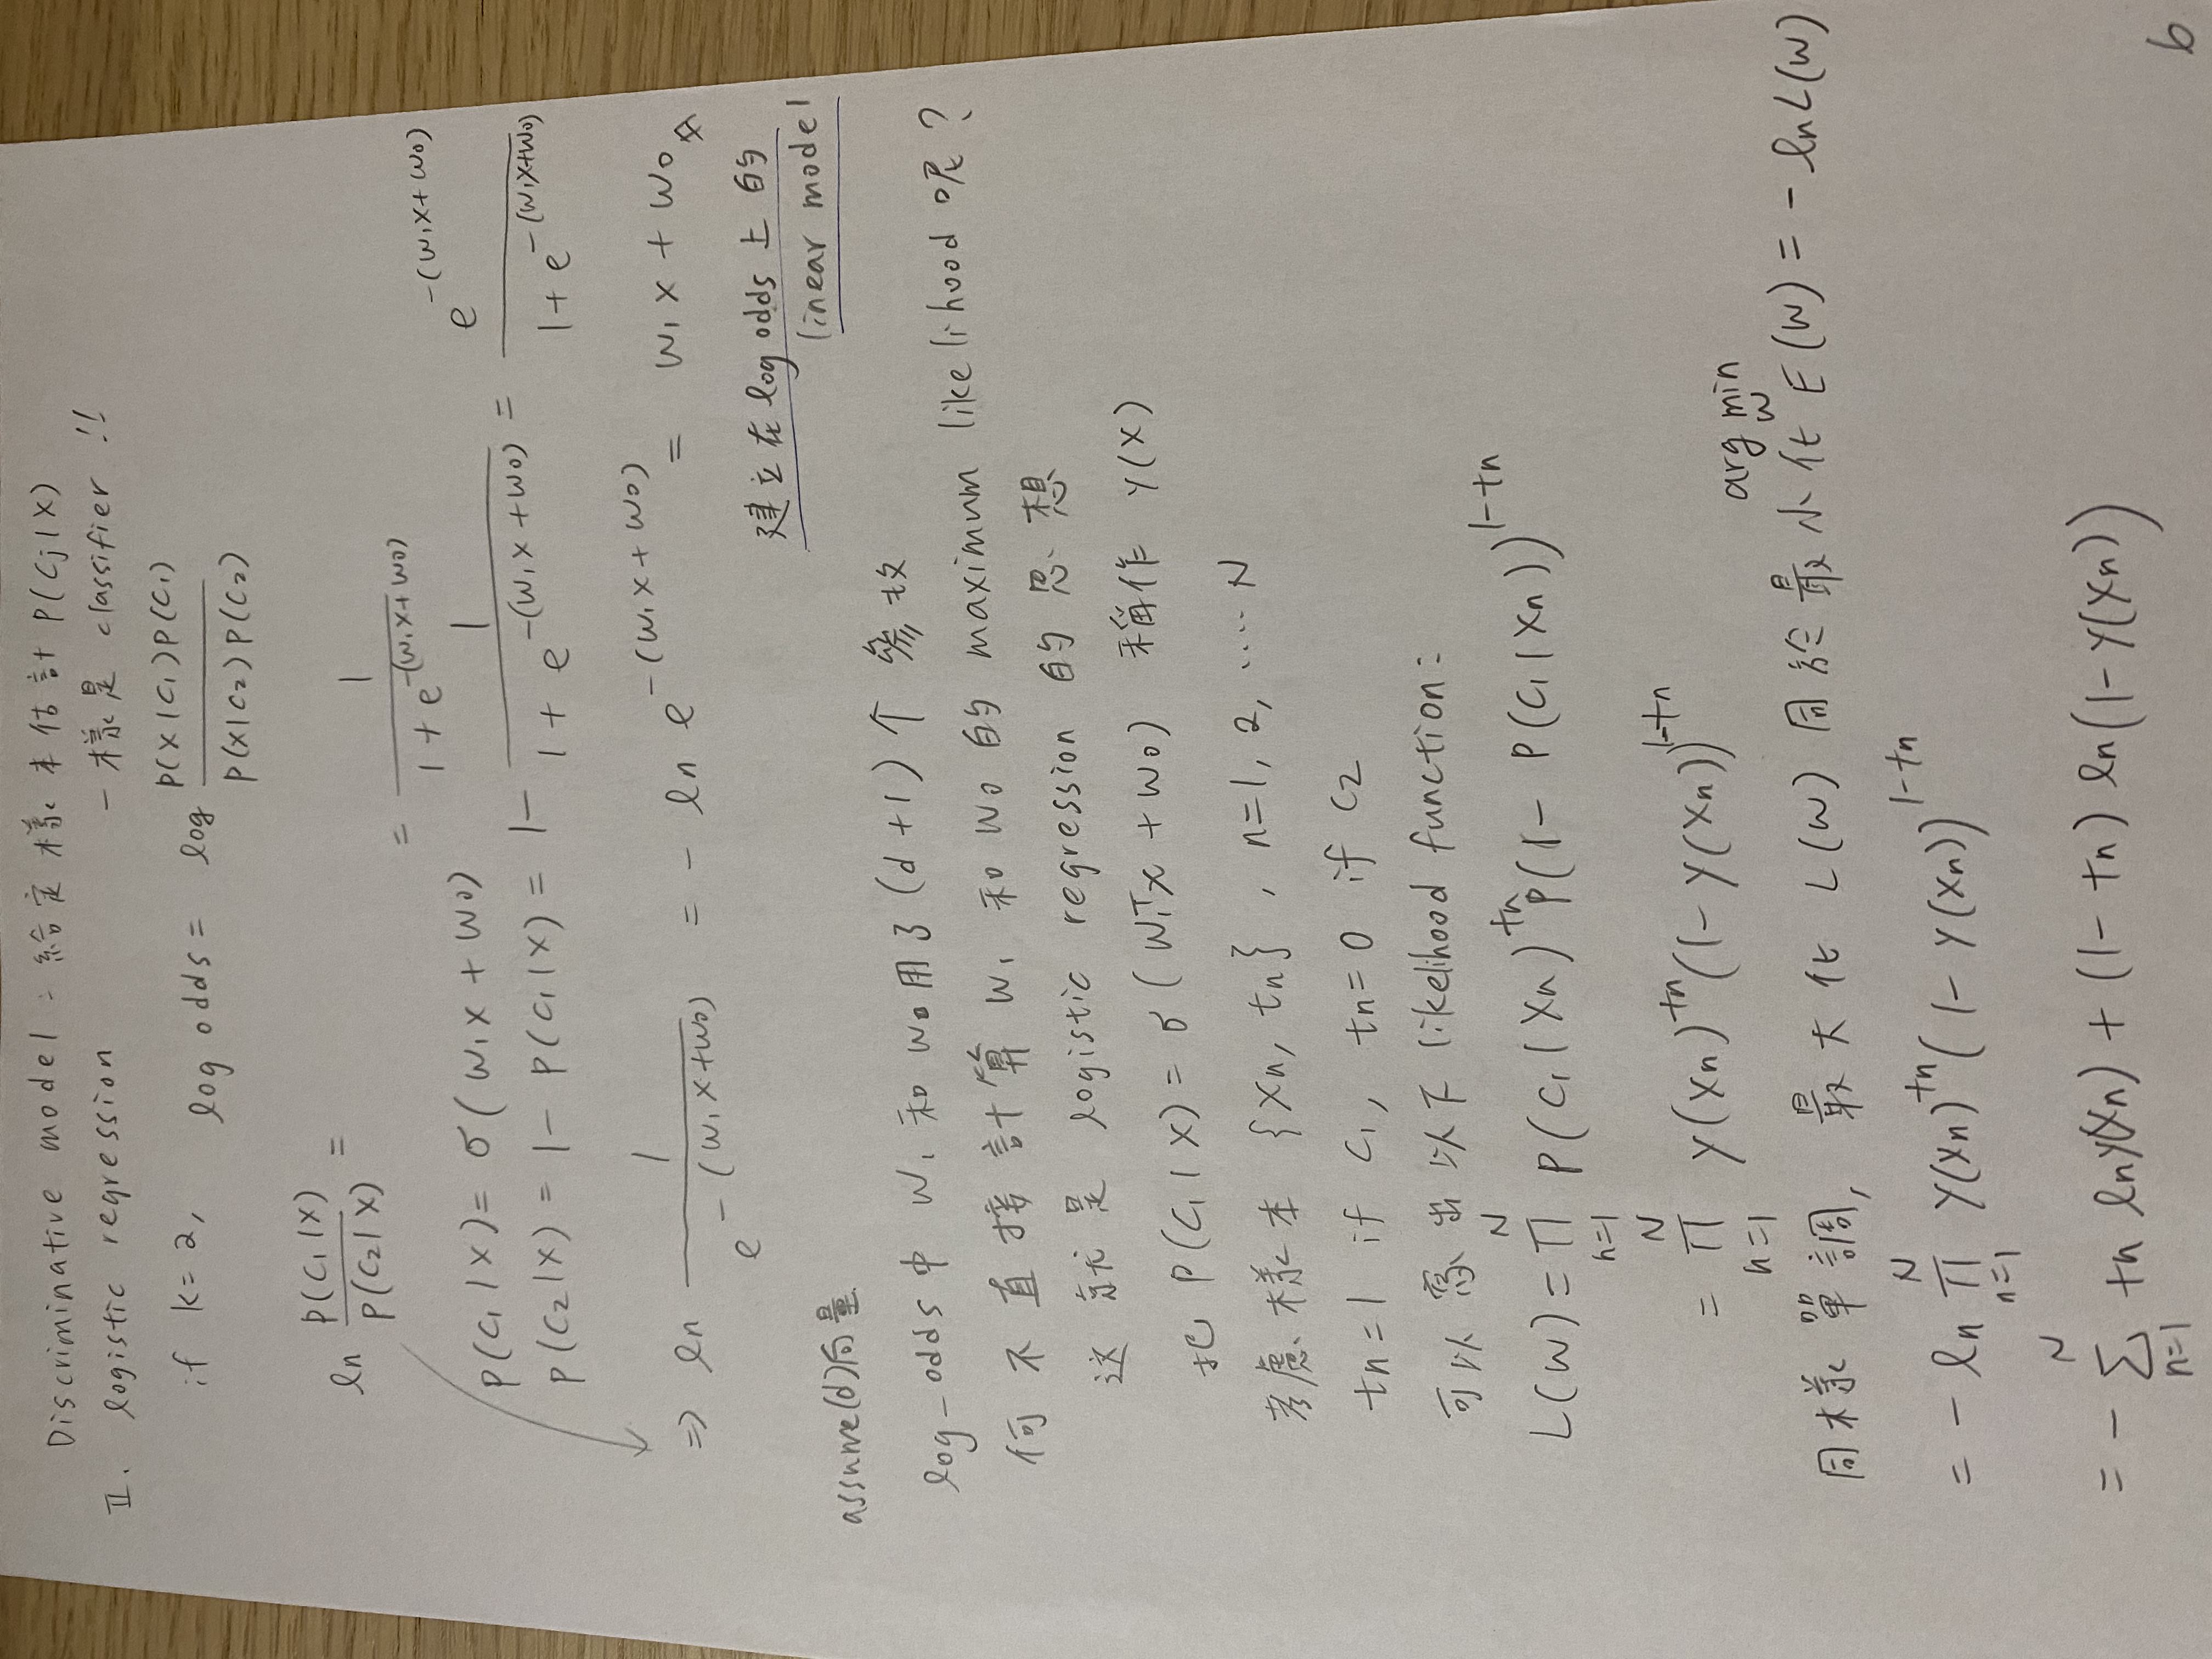 Discriminative model : 給定樣本估計 P(Cj|X)
II. logistic regression 一樣是 classifier !!
if k=2, log odds = log P(X|C₁)P(C₁) / P(X|C₂)P(C₂)
ln P(C₁|X) / P(C₂|X) =
= 1 / 1+e^-(w₁x+w₀)
P(C₁|X) = σ(w₁x + w₀)
P(C₂|X) = 1 - P(C₁|X) = 1 - 1 / 1+e^-(w₁x+w₀) = e^-(w₁x+w₀) / 1+e^-(w₁x+w₀)
⇒ ln 1 / e^-(w₁x+w₀) = - ln e^-(w₁x+w₀) = w₁x + w₀
建立在log odds 上的
linear model
assume(d)向量
log-odds中 w₁ 和 w₀用了(d+1)个 參数
何不直接計算 w₁ 和 w₀ 的 maximum likelihood 呢?
这就是 logistic regression 的思想
把 P(C₁|X) = σ(w₁ᵀx + w₀) 稱作 y(x)
考慮樣本 {xn, tn}, n=1, 2, .... N
tn=1 if C₁, tn=0 if C2
可以寫出以下 likelihood function:
L(w) = ∏ n=1 N P(C₁|Xn)^tn P(1- P(C₁|Xn))^1-tn
= ∏ n=1 N y(xn)^tn (1- y(xn))^1-tn
arg min w
同樣單調, 最大化 L(w) 同於最小化 E(w) = - ln L(w)
= - ln ∏ n=1 N y(xn)^tn (1- y(xn))^1-tn
= - ∑ n=1 N tn ln y(xn) + (1- tn) ln(1- y(xn))
6